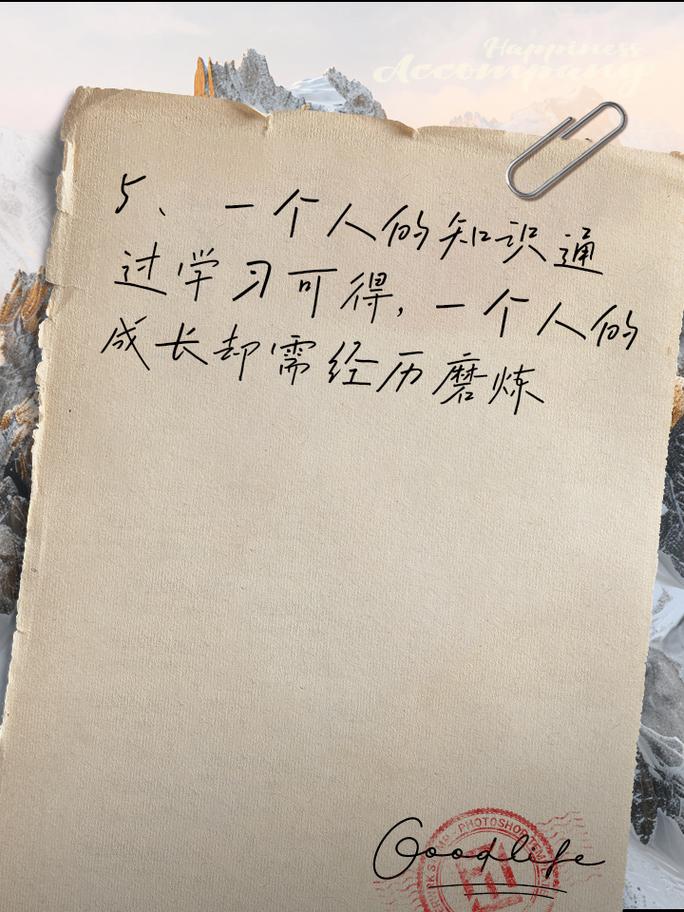 Happiness
Accompany
5、一个人的知识通
过学习可得,一个人的
成长却需经历磨炼
PHOTOSHOP
Goodlife